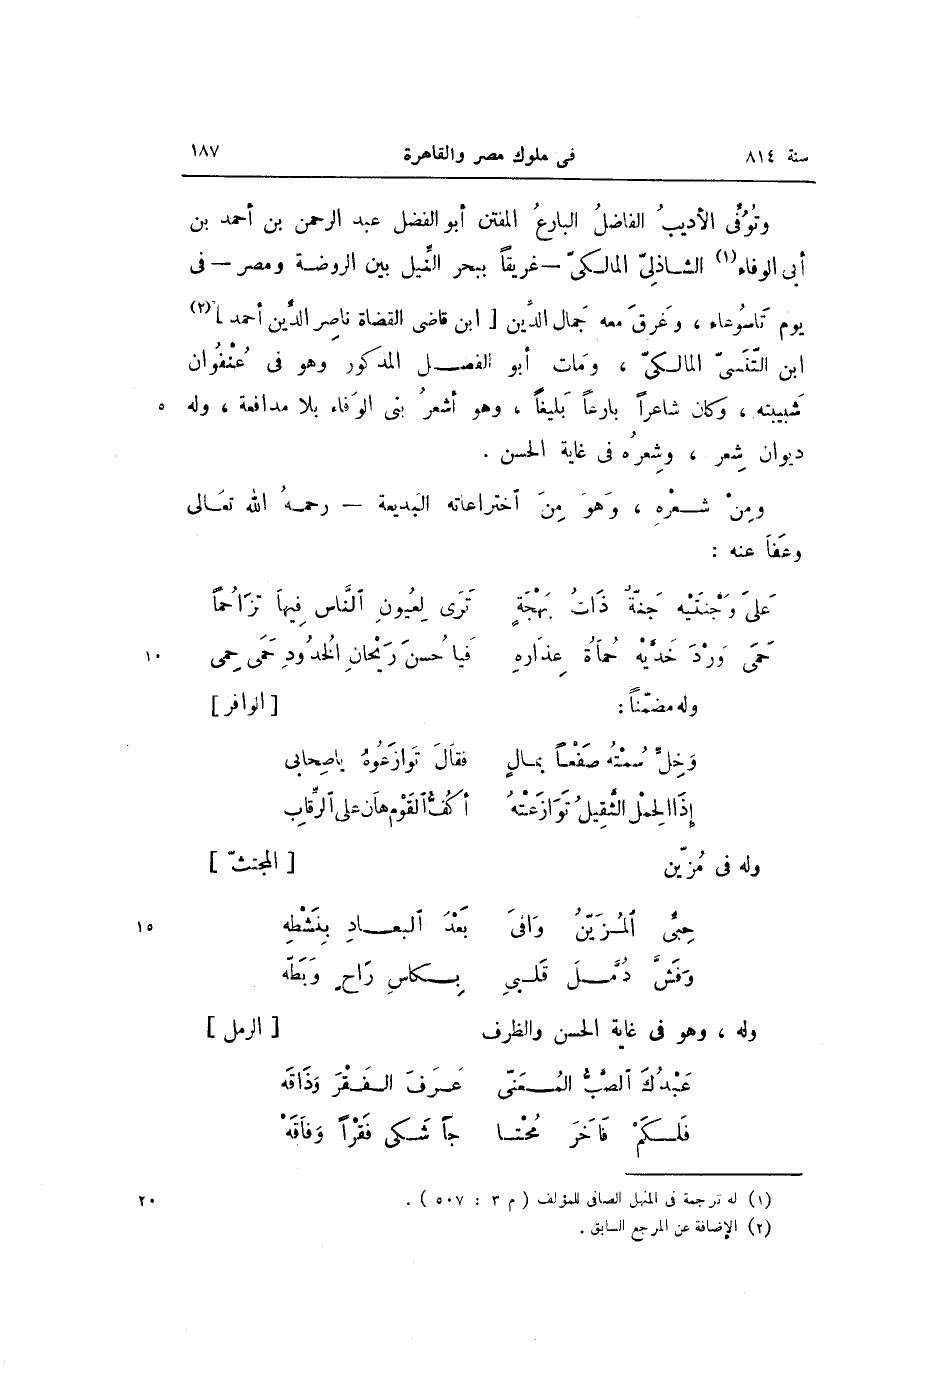 سنة ٨١٤ فى ملوك مصر والقاهرة ١٨٧
وتُوُفِّى الأديبُ الفاضلُ البارعُ المفتن أبو الفضل عبد الرحمن بن أحمد بن
أبى الوفاء(١) الشاذلىّ المالكىّ – غريقاً ببحر النِّيل بين الروضة ومصر – فى
يوم تَاسُوعاء ، وغرقَ معه جَمال الدّين [ ابن قاضى القضاة ناصِر الدِّين أحمد ](٢)
ابن التَّنَسىّ المالكىّ ، ومَات أبو الفضل المذكور وهو فى عُنْفُوان
شَبيبته ، وكان شاعراً بارعاً بَليغاً ، وهو أشعرُ بنى الوَفاء بلا مدافعة ، وله ٥
ديوان شِعر ، وشِعرُه فى غاية الحسن .
ومِنْ شعْرِهِ ، وَهوَ مِنَ اختراعاته البَديعة – رحمهُ الله تعَالى
وعَفاَ عنه :
عَلىَ وَجْنتَيْه جَنةٌ ذَاتُ بَهْجَةٍ تَرَى لِعُيونِ ٱلنَّاس فِيهاَ تَزَاحُماً
حَمَى وَرْدَ خَدَّيْهِ حُمَاةُ عِذَارِهِ فَياَ حُسنَ رَيْحَانِ الخُدُودِ حَمَى حِمى ١٠
وله مضمّناً : [ الوافر ]
وَخِلٍّ سُمْتُهُ صَفْعاً بمالٍ فقاَلَ تَوازَعُوهُ ياصِحابى
إِذَا الحِمْل الثَّقِيلُ تَوَازَعَتْهُ أكُفُّ ٱلقَوْمِ هاَن على ٱلرِّقابِ
وله فى مُزَيّن [ المجتثّ ]
حِبِّى ٱلمُزَيّنُ وَافىَ بَعْدَ ٱلبعادِ بِنَشْطِهِ ١٥
وَفَشَّ دُمَّلَ قَلبىِ بِكاسِ رَاحٍ وَبَطَّه
وله ، وهو فى غاية الحسن والظرف [ الرمل ]
عَبْدُكَ ٱلصَّبُّ المُعَنّى عَرَفَ الفَقْرَ وَذَاقَه
فَلَكَمْ فَاخَرَ مُحْتا جاً شَكى فَقْراً وَفاَقَهْ
(١) له ترجمة فى المنهل الصافى للمؤلف ( م ٣ : ٥٠٧ ) . ٢٠
(٢) الإضافة عن المرجع السابق .